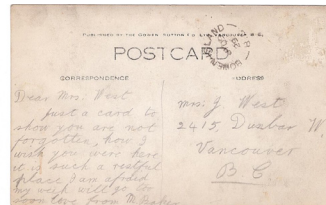 PUBLISHED BY THE GOWEN SUTTON CO. LTD. VANCOUVER, B.C.
POSTCARD
CORRESPONDENCE
ADDRESS
BOWEN ISLAND
Dear Mrs. West
Just a card to
show you are not
forgotten, how I
wish you were here
it is such a restful
place I am afraid
my week will go too
soon love from M.
Mrs. J. West
2415, Dunbar W.
Vancouver
B C